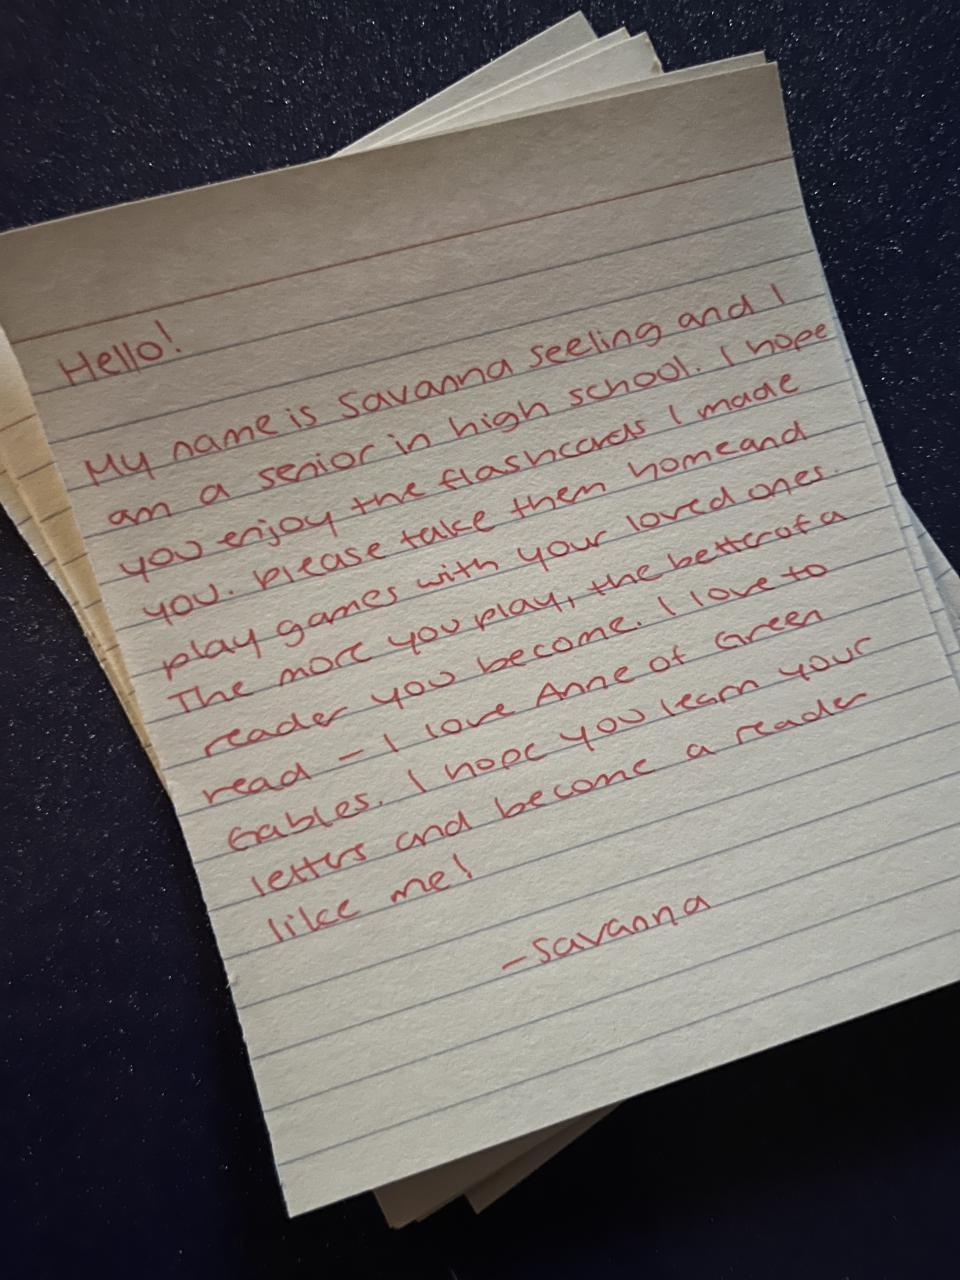 Hello!
My name is Savanna Seeling and I
am a senior in high school. I hope
you enjoy the flashcards I made
you. Please take them home and
play games with your loved ones.
The more you play, the better of a
reader you become. I love to
read - I love Anne of Green
Gables. I hope you learn your
letters and become a reader
like me!
-Savanna